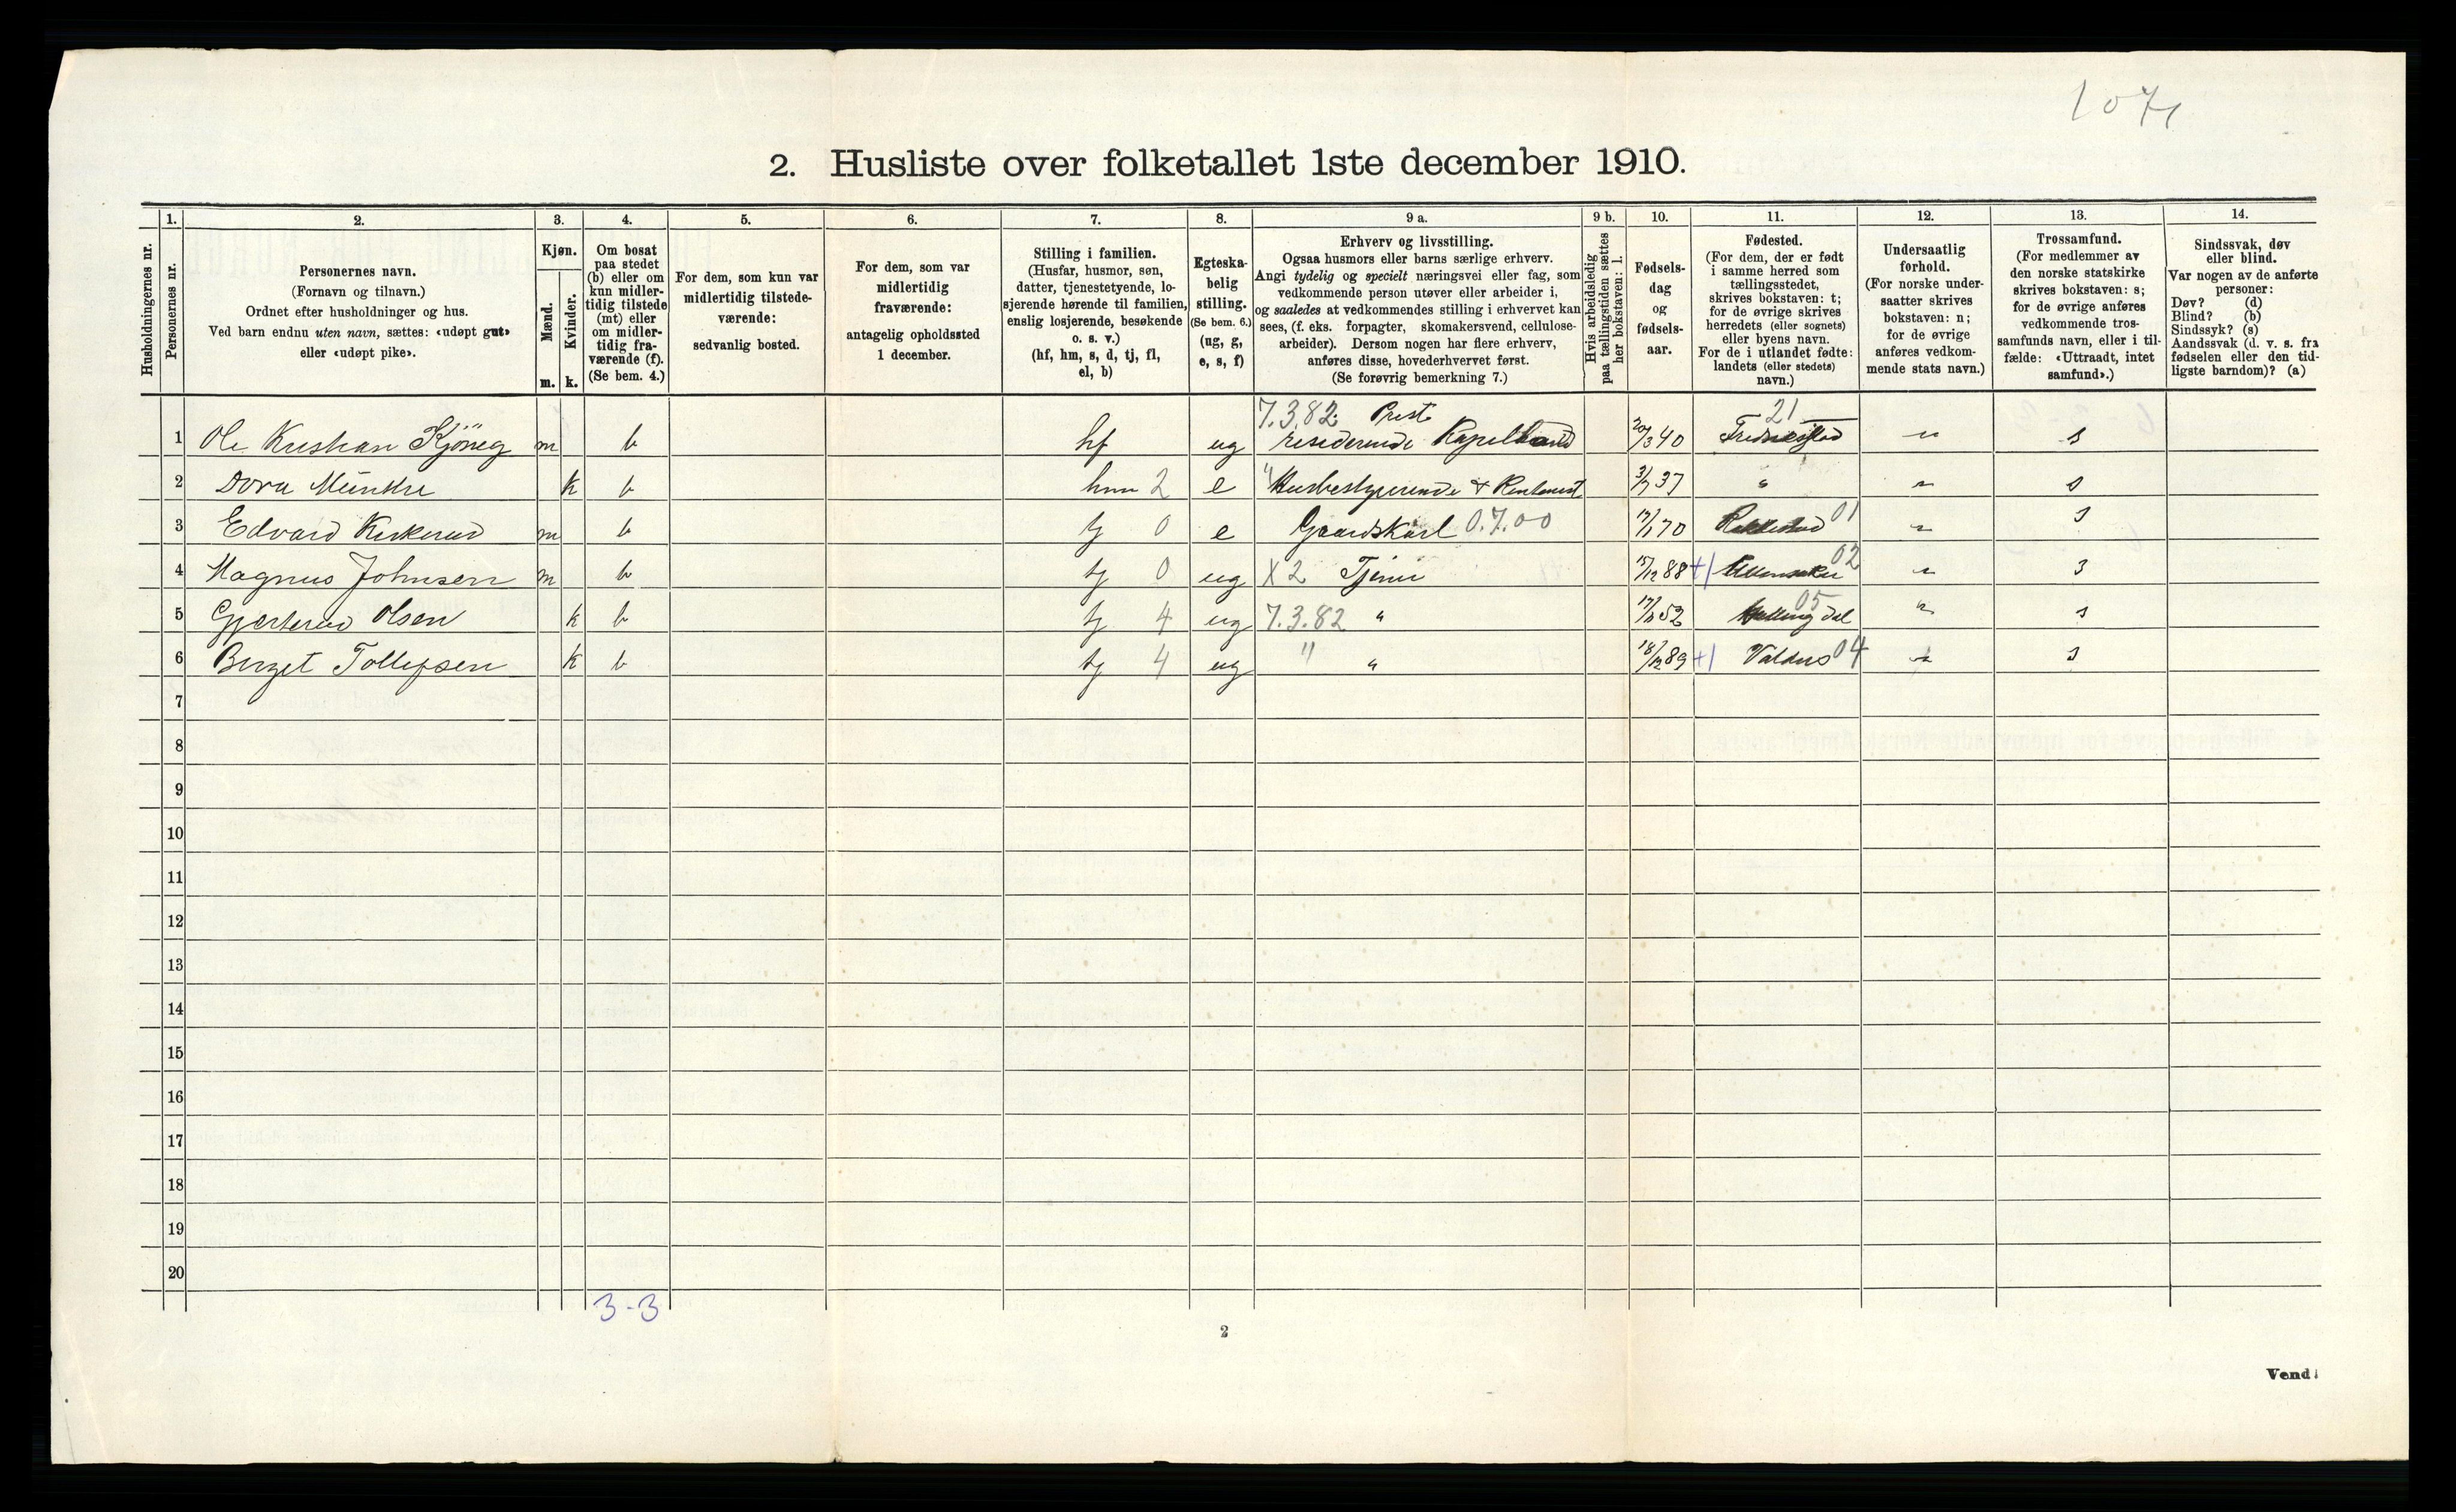 1071
2. Husliste over folketallet 1ste december 1910.
Husholdningernes nr.
1. Personernes nr.
2. Personernes navn.
(Fornavn og tilnavn.)
Ordnet efter husholdninger og hus.
Ved barn endnu uten navn, sættes: «udøpt gut»
eller «udøpt pike».
3. Kjøn.
Mænd. m.
Kvinder. k.
4. Om bosat
paa stedet
(b) eller om
kun midler-
tidig tilstede
(mt) eller
om midler-
tidig fra-
værende (f).
(Se bem. 4.)
5. For dem, som kun var
midlertidig tilstede-
værende:
sedvanlig bosted.
6. For dem, som var
midlertidig
fraværende:
antagelig opholdssted
1 december.
7. Stilling i familien.
(Husfar, husmor, søn,
datter, tjenestetyende, lo-
sjerende hørende til familien,
enslig losjerende, besøkende
o. s. v.)
(hf, hm, s, d, tj, fl,
el, b)
8. Egteska-
belig
stilling.
(Se bem. 6.)
(ug, g,
e, s, f)
9 a. Erhverv og livsstilling.
Ogsaa husmors eller barns særlige erhverv.
Angi tydelig og specielt næringsvei eller fag, som
vedkommende person utøver eller arbeider i,
og saaledes at vedkommendes stilling i erhvervet kan
sees, (f. eks. forpagter, skomakersvend, cellulose-
arbeider). Dersom nogen har flere erhverv,
anføres disse, hovederhvervet først.
(Se forøvrig bemerkning 7.)
9 b. Hvis arbeidsledig
paa tællingstiden sættes
her bokstaven: l.
10. Fødsels-
dag
og
fødsels-
aar.
11. Fødested.
(For dem, der er født
i samme herred som
tællingsstedet,
skrives bokstaven: t;
for de øvrige skrives
herredets (eller sognets)
eller byens navn.
For de i utlandet fødte:
landets (eller stedets)
navn.)
12. Undersaatlig
forhold.
(For norske under-
saatter skrives
bokstaven: n;
for de øvrige
anføres vedkom-
mende stats navn.)
13. Trossamfund.
(For medlemmer av
den norske statskirke
skrives bokstaven: s;
for de øvrige anføres
vedkommende tros-
samfunds navn, eller i til-
fælde: «Uttraadt, intet
samfund».)
14. Sindssvak, døv
eller blind.
Var nogen av de anførte
personer:
Døv? (d)
Blind? (b)
Sindssyk? (s)
Aandssvak (d. v. s. fra
fødselen eller den tid-
ligste barndom)? (a)
7.3.82 Prest 21
1 Ole Kristian Kjönig m b hf ug residerende Kapelland 20/3 40 Fredrikstad n s
2 Dora Müntke k b hm 2 e " Husbestyrerinde + Rentenist 37 " n s
3 Edvard m b tj 0 e Gaardskarl 0.7.00 70 Rakkestad 01 n s
4 Magnus Johnsen m b tj 0 ug X2 Tjener 15/12 88 +1 Ullensaker 02 n s
5 Gjertrud Olsen k b tj 4 ug 7.3.82 " 52 Hallingdal 05 n s
6 Berget Tollefsen k b tj 4 ug " " 18/12 89 +1 Valders 04 n s
7
8
9
10
11
12
13
14
15
16
17
18
19
20
3-3
2
Vend!